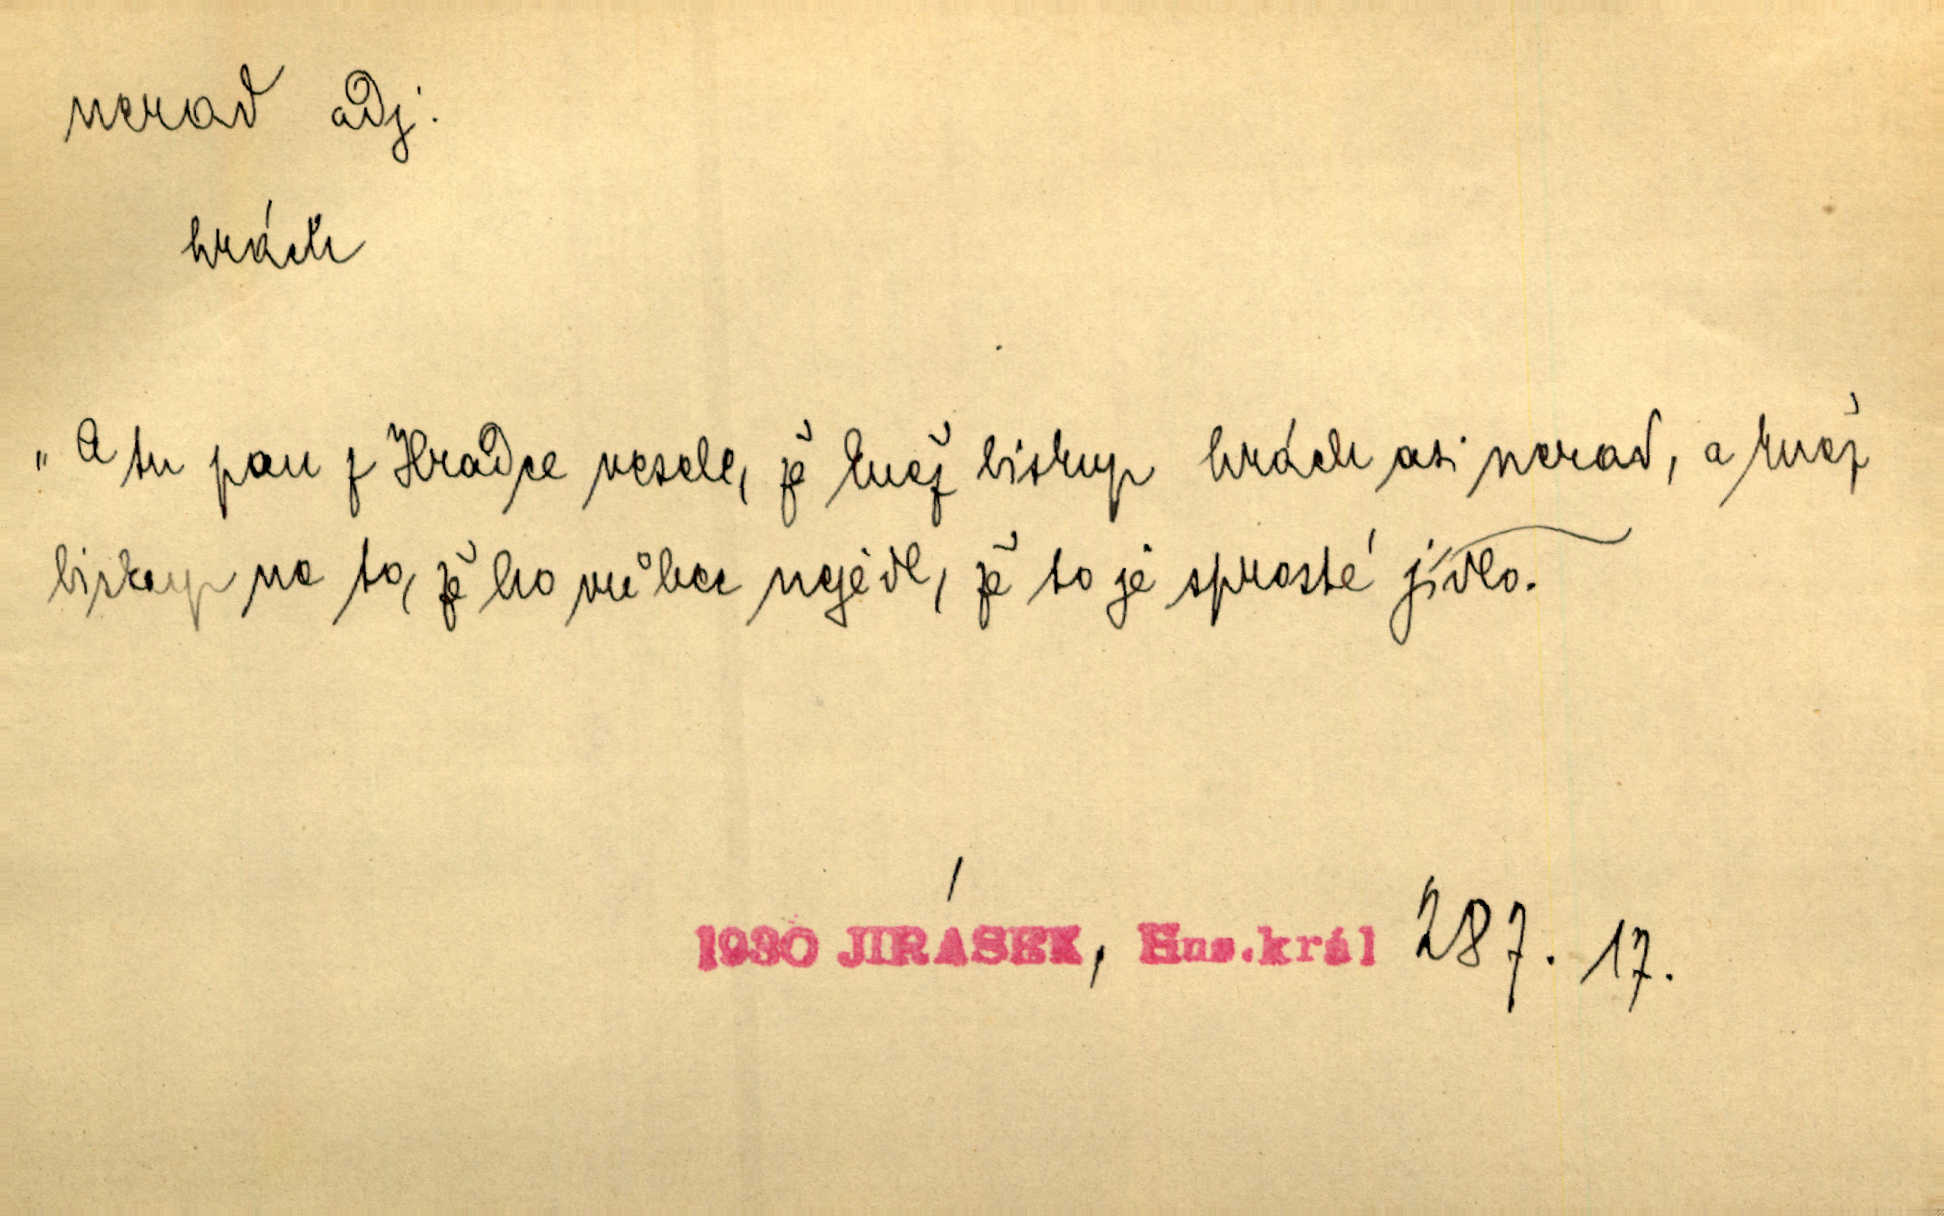 nerad adj.
hrách
„A tu pan z Hradce vesele, že kněz biskup hrách asi nerad, a kněz
biskup na to, že ho vůbec nejedl, že to je sprosté jídlo.
1930 JIRÁSEK, Hus.král 287. 17.